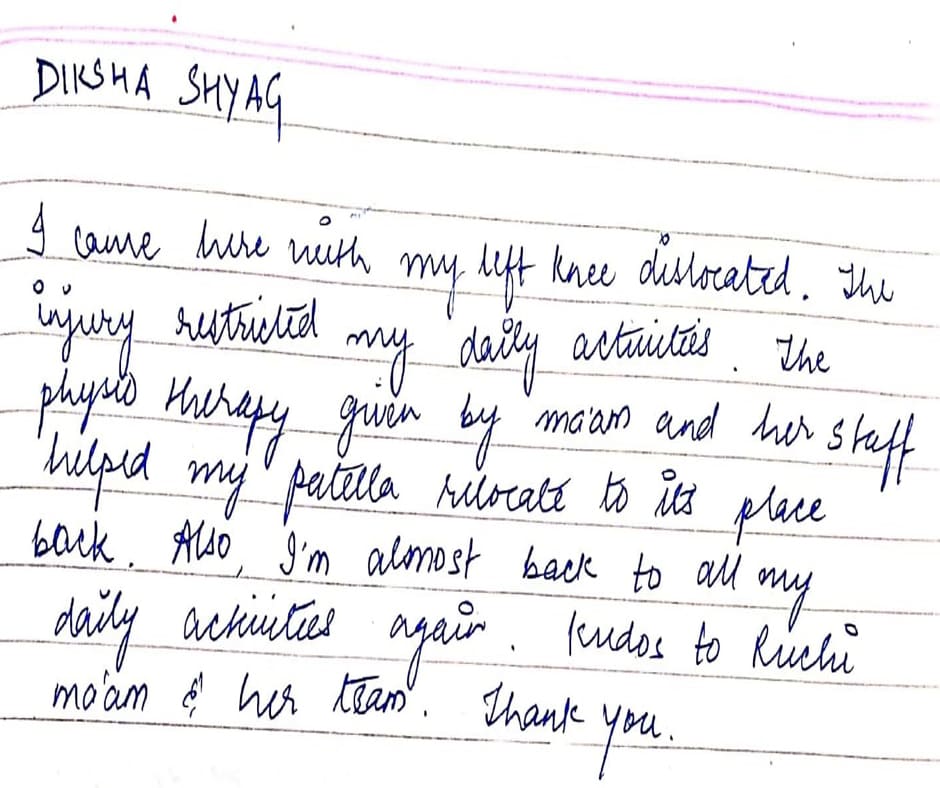 DIKSHA SHYAG
I came here with my left knee dislocated. The
injury restricted my daily activities. The
physio therapy given by ma'am and her staff
helped my patella relocate to its place
back. Also, I'm almost back to all my
daily activities again. Kudos to Ruchi
ma'am & her team. Thank you.